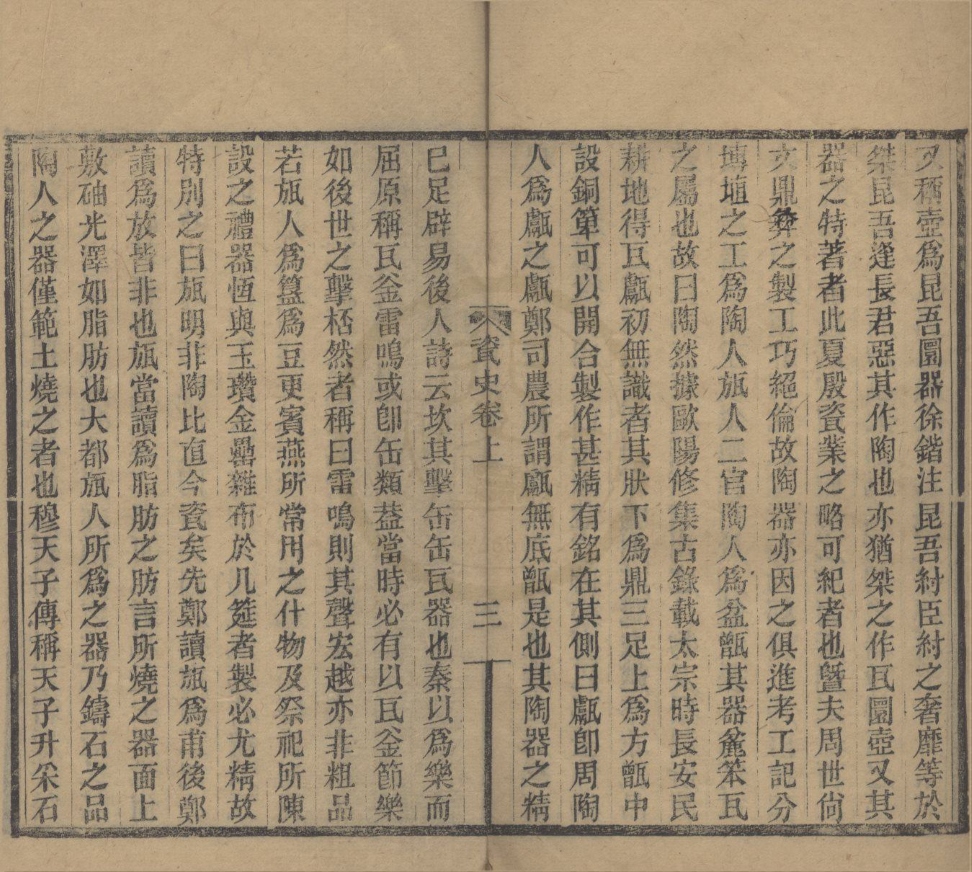 又稱壺爲昆吾圜器徐鍇注昆吾紂臣紂之奢靡等於
桀昆吾逢長君惡其作陶也亦猶桀之作瓦圜壺又其
器之特著者此夏殷瓷業之略可紀者也曁夫周世尙
文鼎彝之製工巧絕倫故陶器亦因之俱進考工記分
塼埴之工爲陶人瓬人二官陶人爲盆甑其器麄笨瓦
之屬也故曰陶然據歐陽修集古錄載太宗時長安民
耕地得瓦甗初無識者其狀下爲鼎三足上爲方甑中
設銅箄可以開合製作甚精有銘在其側曰甗卽周陶
人爲甗之甗鄭司農所謂甗無底甑是也其陶器之精
瓷史卷上
三
已足辟易後人詩云坎其擊缶缶瓦器也秦以爲樂而
屈原稱瓦釜雷鳴或卽缶類葢當時必有以瓦釜節樂
如後世之擊桮然者稱曰雷鳴則其聲宏越亦非粗品
若瓬人爲簋爲豆更賓燕所常用之什物及祭祀所陳
設之禮器恆與玉瓚金罍雜布於几筵者製必尤精故
特別之曰瓬明非陶比直今瓷矣先鄭讀瓬爲甫後鄭
讀爲放皆非也瓬當讀爲脂肪之肪言所燒之器面上
敷砷光澤如脂肪也大都瓬人所爲之器乃鑄石之品
陶人之器僅範土燒之者也穆天子傳稱天子升采石